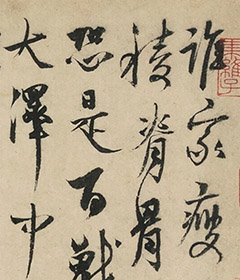 誰家瘦
稜脊骨
恐是百戰
大澤中